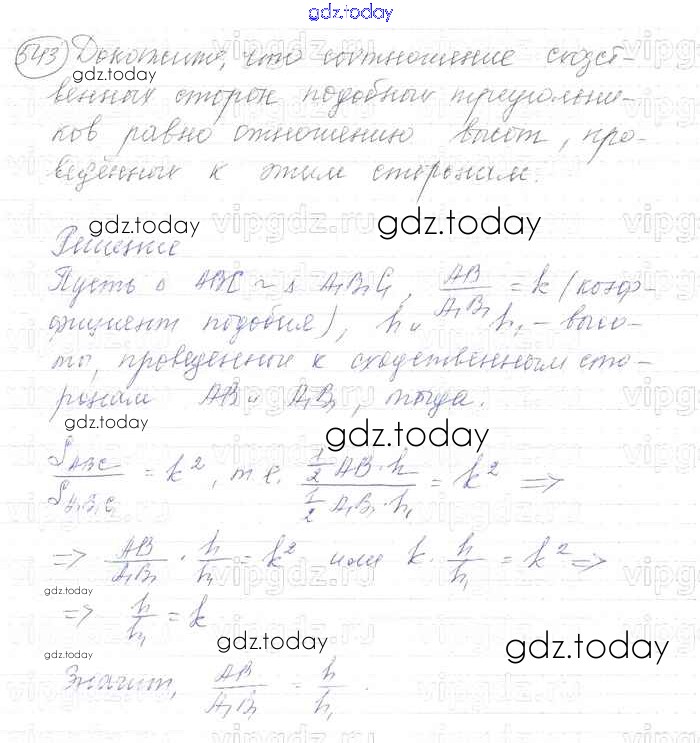 gdz.today
543 Докажите, что соотношение сходст-
gdz.today
венных сторон подобных треугольни-
ков равно отношению высот, про-
ведённых к этим сторонам.
gdz.today gdz.today
Решение
Пусть △ ABC ~ △ A₁B₁C₁, AB/A₁B₁ = k (коэф-
фициент подобия), h и h₁ - высо-
ты, проведенные к сходственным сто-
ронам AB и A₁B₁, тогда:
gdz.today gdz.today
S_ABC/S_A₁B₁C₁ = k², т.е. (1/2 AB · h)/(1/2 A₁B₁ · h₁) = k² =>
=> AB/A₁B₁ · h/h₁ = k² или k · h/h₁ = k² =>
gdz.today
=> h/h₁ = k
gdz.today gdz.today
gdz.today
Значит, AB/A₁B₁ = h/h₁.